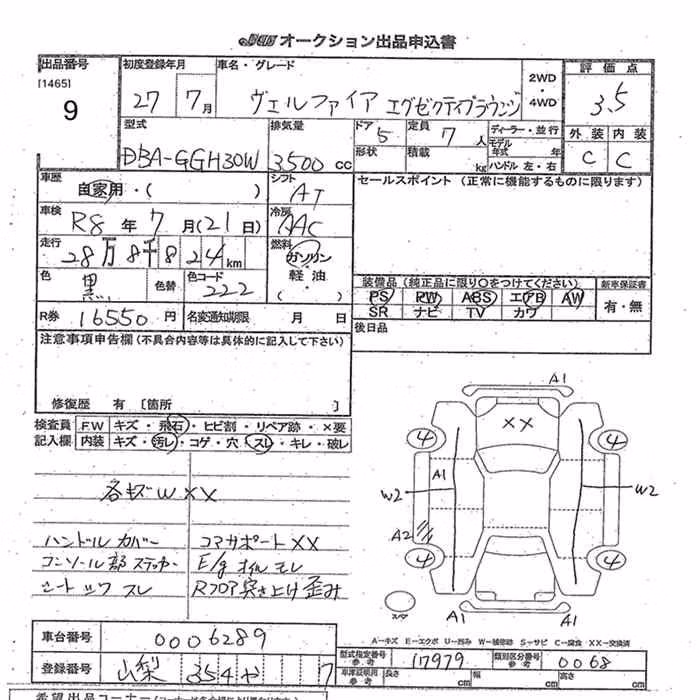 JU オークション出品申込書
出品番号 初度登録年月 車名・グレード 2WD・4WD 評価点
[1465]
9
27 7月 ヴェルファイア エグゼクティブラウンジ 3.5
型式 排気量 ドア 5 定員 7人 ディーラー・並行 外装 内装
DBA-GGH30W 3500cc 形状 積載 kg モデル年式 年 C C
ハンドル 左・右
車歴 自家用・( ) シフト AT セールスポイント (正常に機能するものに限ります)
車検 R8年7月(21日) 冷房 AAC
走行 28万8千824km 燃料 ガソリン 軽油・( )
色 黒 色替 色コード 222
装備品 (純正品に限り○をつけてください) 新車保証書
PS PW ABS エアB AW 有・無
SR ナビ TV カワ
R券 16550円 名変通知期限 月 日 後日品
注意事項申告欄(不具合内容等は具体的に記入して下さい)
修復歴 有 [箇所 ]
検査員 F.W キズ・飛石・ヒビ割・リペア跡・×要
記入欄 内装 キズ・汚レ・コゲ・穴・スレ・キレ・破レ
A1
XX
4 4
A1
W2 W2
A2
4 4
スペア
A1 A1
各キズW XX
ハンドルカバー コアサポートXX
コンソール部ステッカー E/gオイルモレ
シートックスレ Rフロア突き上げ歪み
A-キズ E-エクボ U-凹み W-補修跡 S-サビ C-腐食 XX-交換済
車台番号 0006289
型式指定番号 参考 17979 類別区分番号 参考 0068
登録番号 山梨 354 や 7
車庫証明用 参考 長さ cm 幅 cm 高さ cm
希望出品コーナー